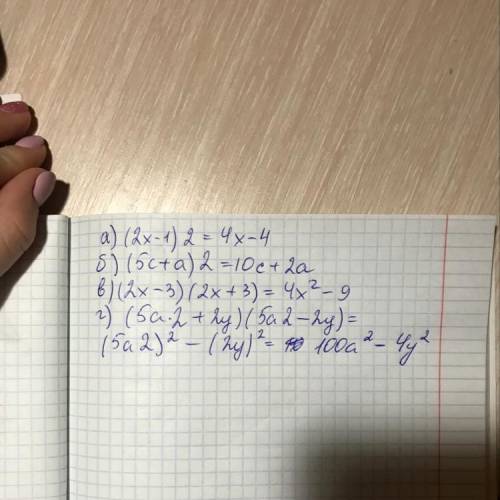 а) (2x-1) 2 = 4x-4
б) (5c+a) 2 = 10c+2a
в) (2x-3) (2x+3) = 4x² - 9
г) (5a·2 + 2y) (5a2 - 2y) =
(5a2)² - (2y)² = 100a² - 4y²